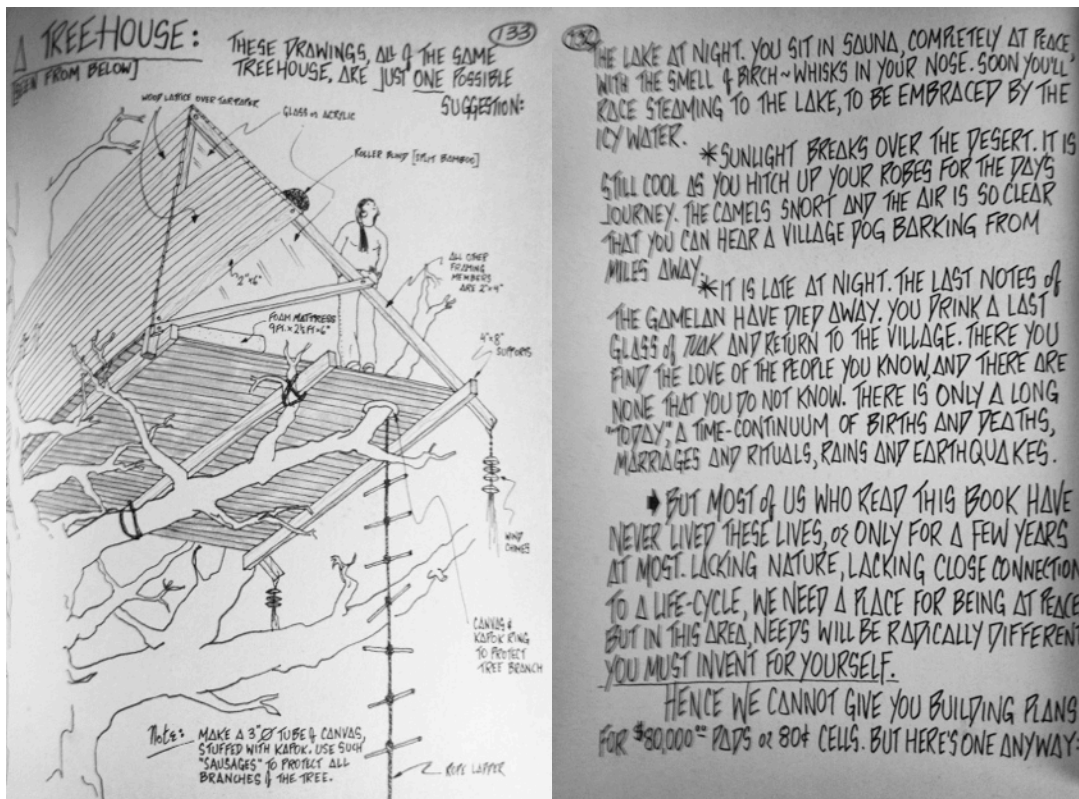 A TREEHOUSE:
[SEEN FROM BELOW]
133
THESE DRAWINGS, ALL of THE SAME
TREEHOUSE, ARE JUST ONE POSSIBLE
SUGGESTION:
WOOD LATTICE OVER TARPAPER
GLASS or ACRYLIC
ROLLER BLIND [SPLIT BAMBOO]
ALL OTHER
FRAMING
MEMBERS
ARE 2"x4"
2"x6"
FOAM MATTRESS
9 FT. x 2½ FT x 6"
4"x8"
SUPPORTS
WIND
CHIMES
CANVAS &
KAPOK RING
TO PROTECT
TREE BRANCH
Note: MAKE A 3"Ø TUBE of CANVAS,
STUFFED WITH KAPOK. USE SUCH
"SAUSAGES" TO PROTECT ALL
BRANCHES of THE TREE.
ROPE LADDER
132
THE LAKE AT NIGHT. YOU SIT IN SAUNA, COMPLETELY AT PEACE,
WITH THE SMELL of BIRCH~WHISKS IN YOUR NOSE. SOON YOU'LL
RACE STEAMING TO THE LAKE, TO BE EMBRACED BY THE
ICY WATER.
*SUNLIGHT BREAKS OVER THE DESERT. IT IS
STILL COOL AS YOU HITCH UP YOUR ROBES FOR THE DAY'S
JOURNEY. THE CAMELS SNORT AND THE AIR IS SO CLEAR
THAT YOU CAN HEAR A VILLAGE DOG BARKING FROM
MILES AWAY.
*IT IS LATE AT NIGHT. THE LAST NOTES of
THE GAMELAN HAVE DIED AWAY. YOU DRINK A LAST
GLASS of TUAK AND RETURN TO THE VILLAGE. THERE YOU
FIND THE LOVE OF THE PEOPLE YOU KNOW, AND THERE ARE
NONE THAT YOU DO NOT KNOW. THERE IS ONLY A LONG
"TODAY," A TIME-CONTINUUM OF BIRTHS AND DEATHS,
MARRIAGES AND RITUALS, RAINS AND EARTHQUAKES.
BUT MOST of US WHO READ THIS BOOK HAVE
NEVER LIVED THESE LIVES, or ONLY FOR A FEW YEARS
AT MOST. LACKING NATURE, LACKING CLOSE CONNECTION
TO A LIFE-CYCLE, WE NEED A PLACE FOR BEING AT PEACE
BUT IN THIS AREA, NEEDS WILL BE RADICALLY DIFFERENT
YOU MUST INVENT FOR YOURSELF.
HENCE WE CANNOT GIVE YOU BUILDING PLANS
FOR $80,000.00 PADS or 80¢ CELLS. BUT HERE'S ONE ANYWAY: